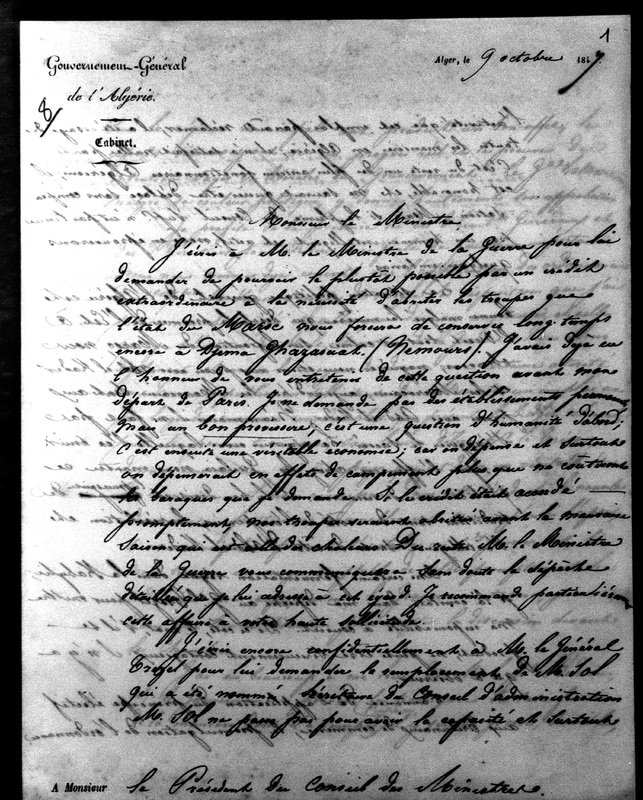 1
Gouvernement-Général
de l'Algérie.
Cabinet.
Alger, le 9 octobre 1847
8/
Monsieur le Ministre,
J'écris à M. le Ministre de la Guerre pour lui
demander de pourvoir le plustôt possible par un crédit
extraordinaire à la nécessité d'abriter les troupes que
l'état du Maroc nous forcera de conserver long-temps
encore à Djema Ghazaouat (Nemours). J'avais déjà eu
l'honneur de vous entretenir de cette question avant mon
départ de Paris. Je ne demande pas des établissements permanents
mais un bon provisoire; c'est une question d'humanité d'abord;
c'est ensuite une véritable économie; car on dépense et surtout
on dépenserait en effets de campement plus que ne coûteront
les baraques que je demande. Si le crédit était accordé
promptement, nos troupes seraient abritées avant la mauvaise
saison qui est celle des chaleurs. Du reste, M. le Ministre
de la Guerre vous communiquera sans doute la dépêche
détaillée que je lui adresse à cet égard. Je recommande particulièrem
cette affaire à votre haute sollicitude.
J'écris encore confidentiellement à M. le Général
Trezel pour lui demander le remplacement de M. Sol
qui a été nommé Secrétaire du Conseil d'administration
M. Sol ne passe pas pour avoir la capacité et surtout
A Monsieur le Président du Conseil des Ministres.